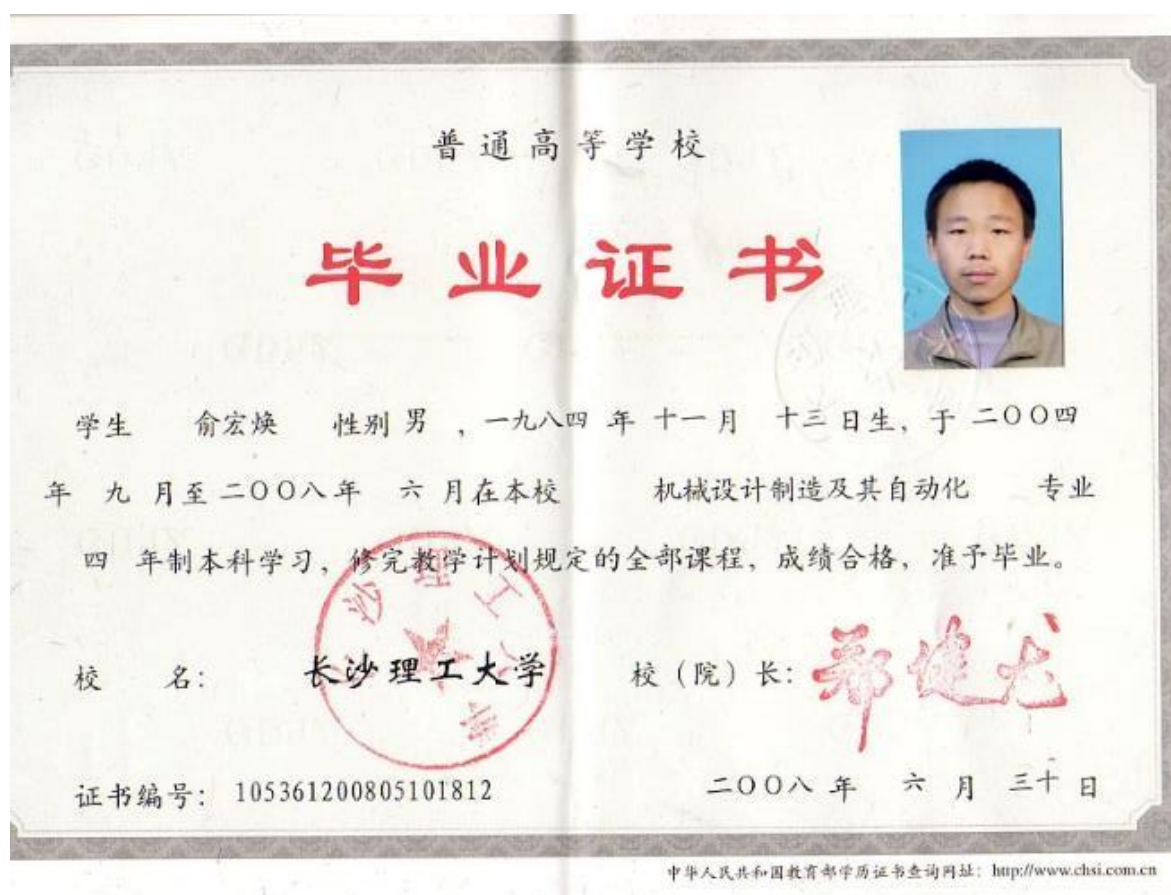 普通高等学校
毕业证书
学生 俞宏焕 性别 男 ，一九八四 年 十一月 十三 日生，于 二〇〇四
年 九 月至 二〇〇八年 六 月在本校 机械设计制造及其自动化 专业
四 年制本科学习，修完教学计划规定的全部课程，成绩合格，准予毕业。
校 名： 长沙理工大学 校（院）长： 郑健龙
证书编号： 105361200805101812 二〇〇八 年 六 月 三十 日
中华人民共和国教育部学历证书查询网址：http://www.chsi.com.cn